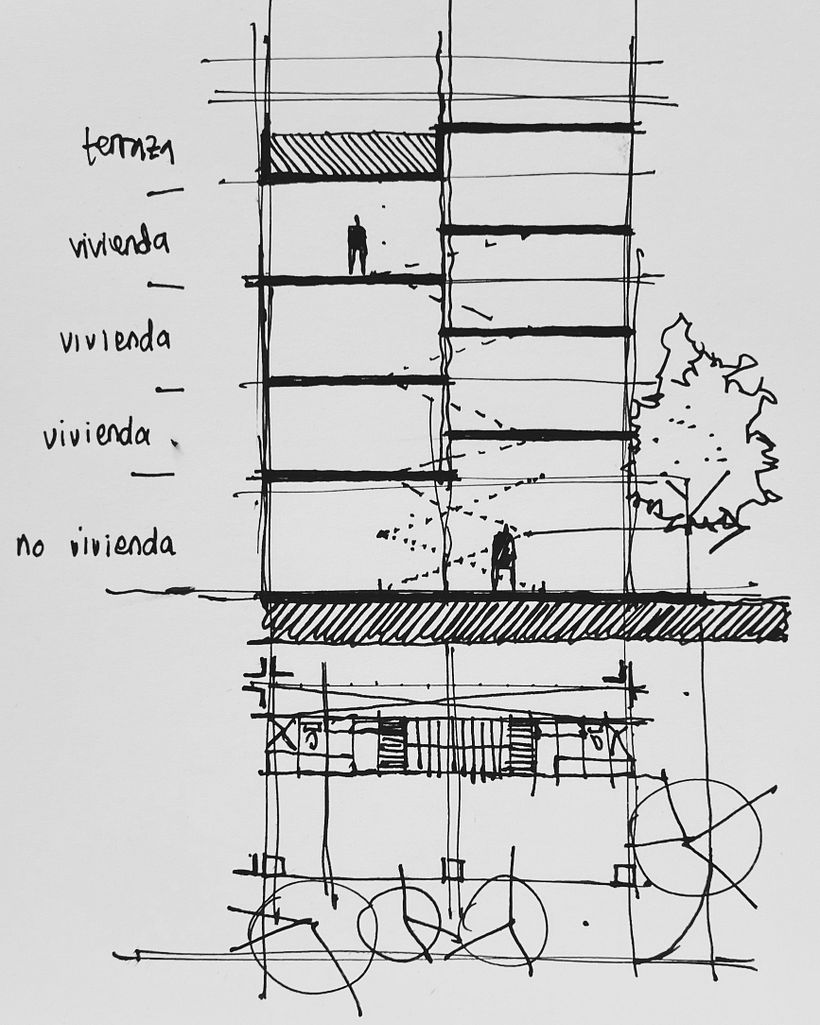 terraza
vivienda
vivienda
vivienda
no vivienda